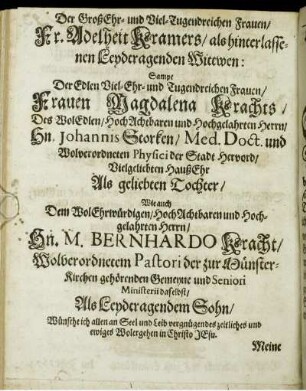 Der GroßEhr- und Viel-Tugendreichen Frauen/
Fr. Adelheit Kramers/ als hinterlasse-
nen Leydtragenden Witwen:
Sampt
Der Edlen Viel-Ehr- und Tugendreichen Frauen/
Frauen Magdalena Krachts/
Des WolEdlen/ Hoch Achtbaren und Hochgelahrten Herrn/
Hn. Johannis Storken/ Med. Doct. und
Wolverordneten Physici der Stadt Hervord/
Vielgeliebten HaußEhr
Als geliebten Tochter/
Wie auch
Dem WolEhrwürdigen/ Hoch Achtbaren und Hoch-
gelahrten Herrn/
Hn. M. BERNHARDO Kracht/
Wolverordnetem Pastori der zur Münster-
Kirchen gehörenden Gemeyne und Seniori
Ministerii daselbst/
Als Leydtragendem Sohn/
Wünsche ich allen an Seel und Leib vergnügendes zeitliches und
ewiges Wolergehen in Christo JEsu.
Meine